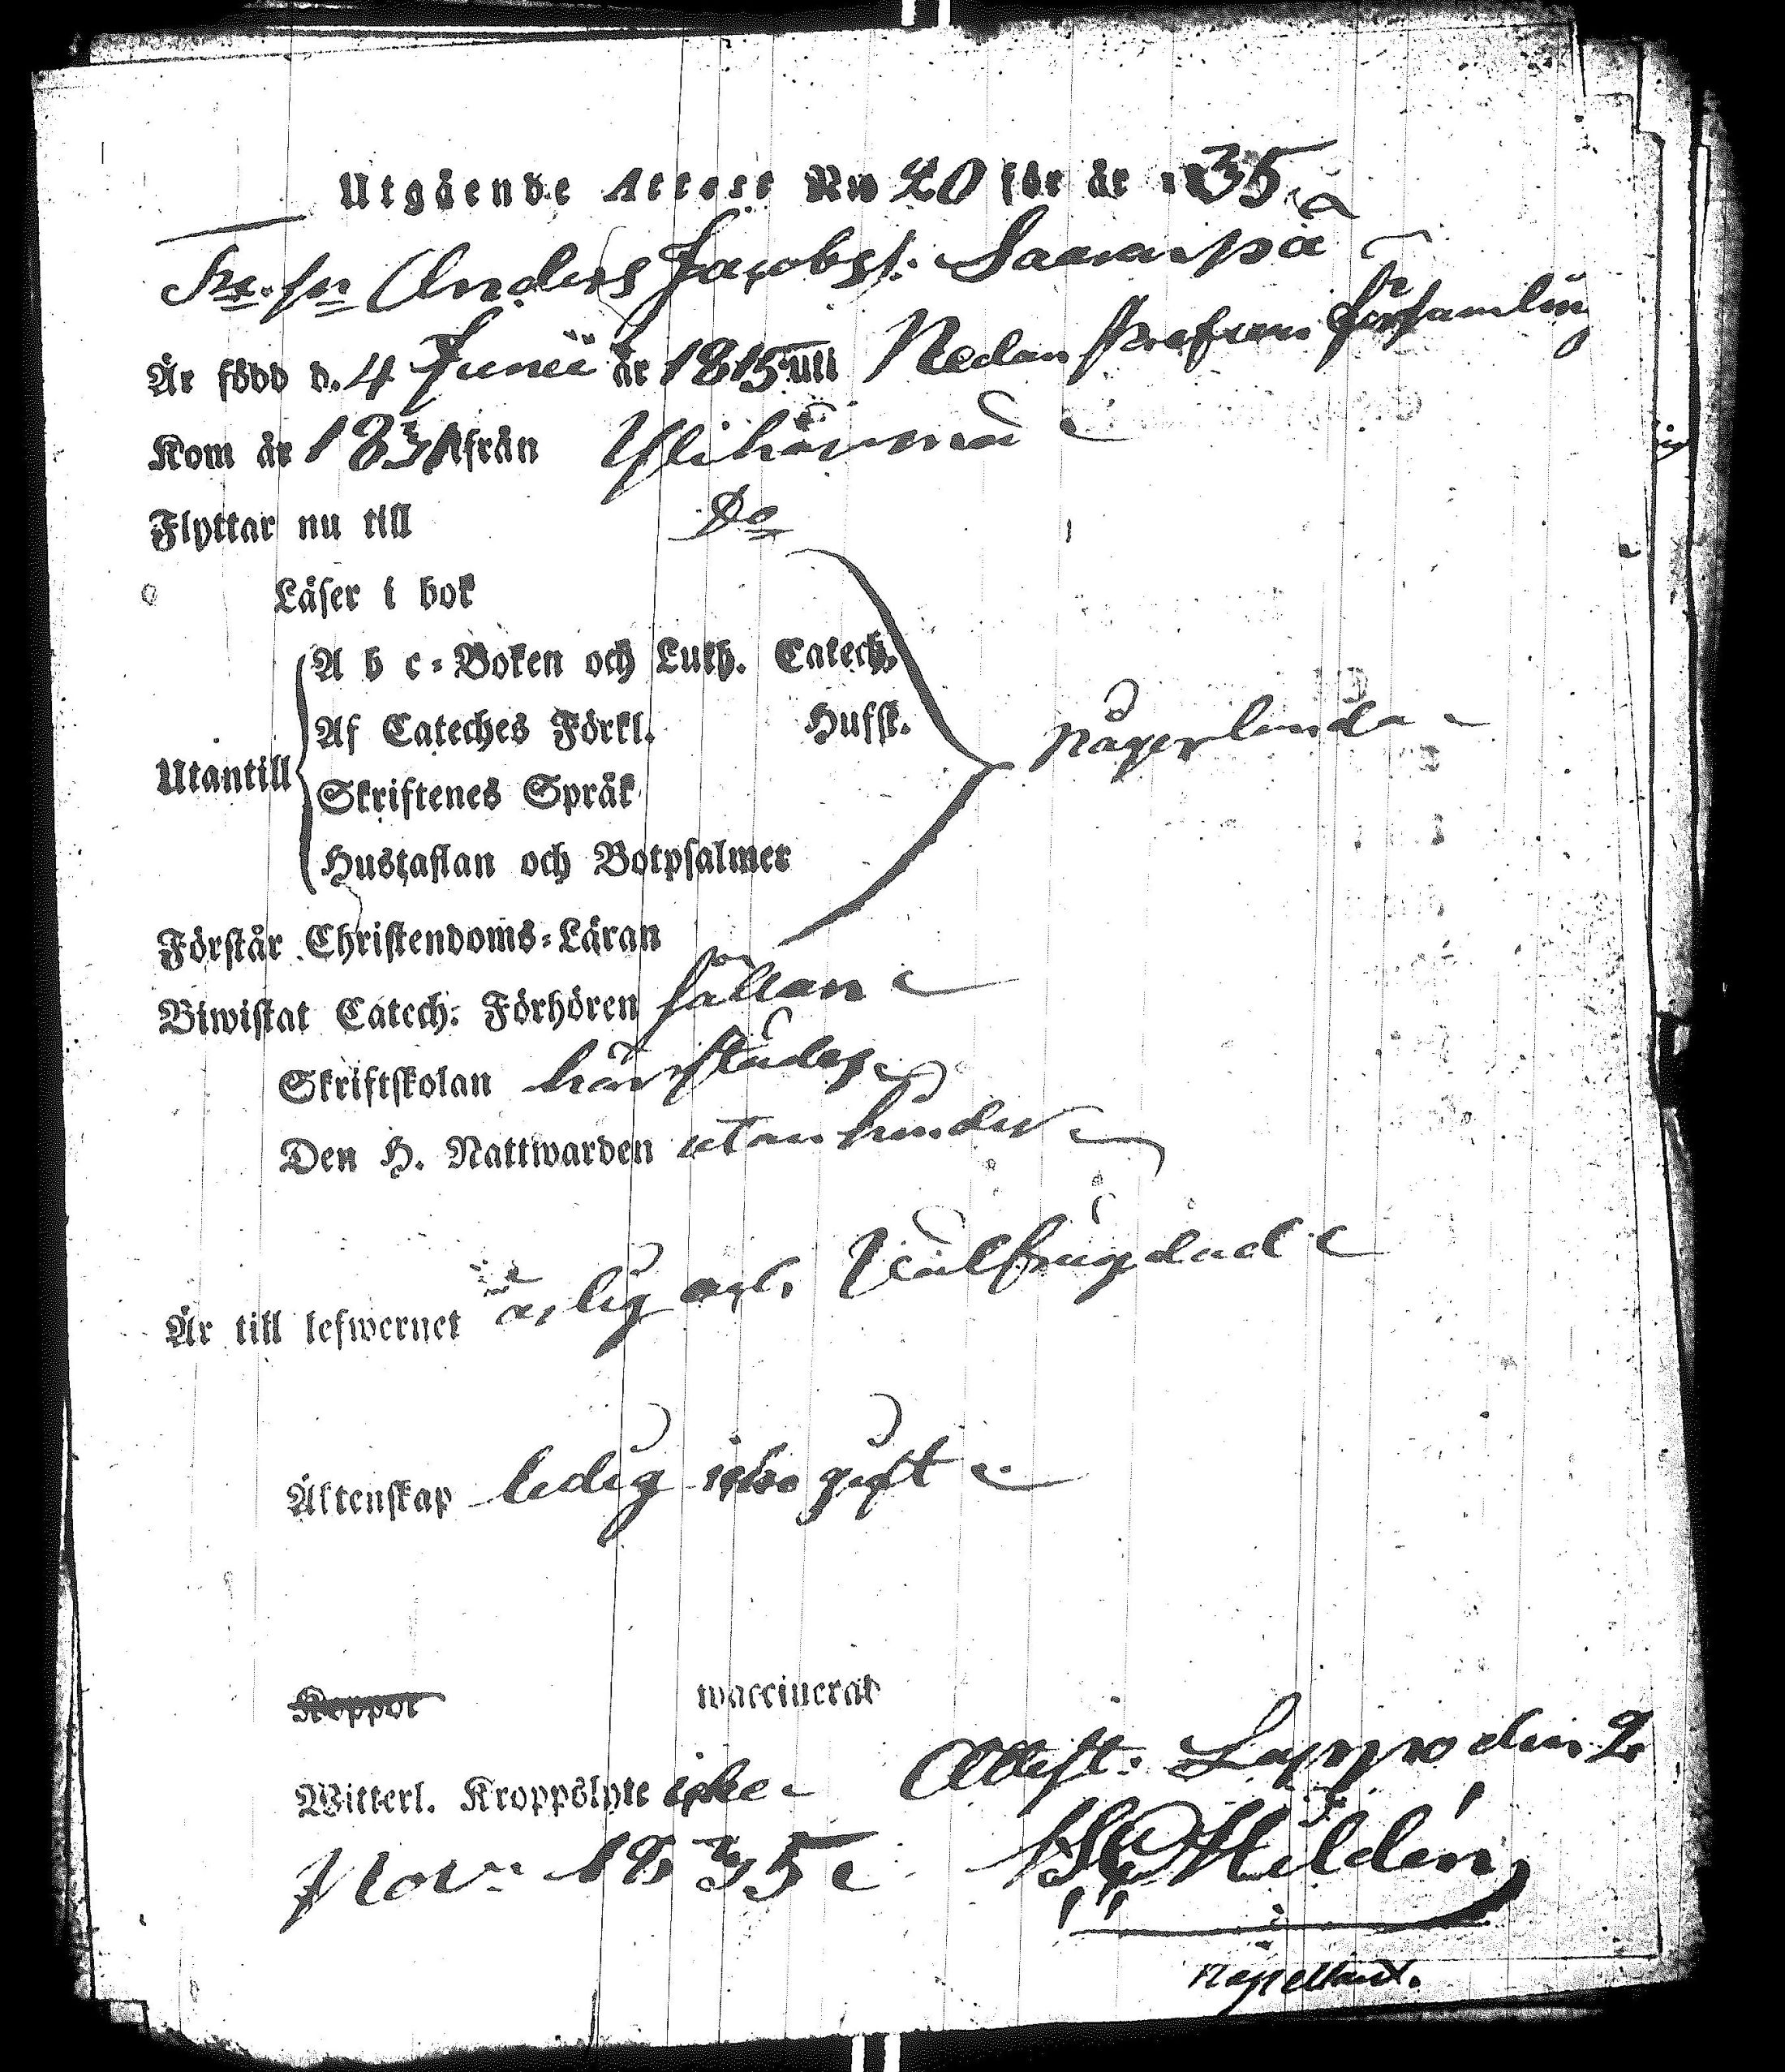 Utgående Attest No 20 för år 1835.
Anders Jacobss: Saarenpä
Är född d. 4 Junii år 1815 uti Nedanskrefven församling
Kom år 1831 ifrån Ylihärmä
Flyttar nu till Do
Läser i bok
A b c-Boken och Luth. Catech.
Af Cateches Förkl. Hufst.
någorlunda
Utantill
Skriftenes Språk
Hustaflan och Botpsalmer
Förstår Christendoms-Läran
Biwistat Catech: Förhören sällan
Skriftskolan härstädes
Den H. Nattwarden utan hinder
Är till lefwernet ärlig och Välfrägdad
Äktenskap ledig icke gift
Koppor waccinerad
Witterl. Kroppslyte icke Attest: Lappo den 2
Nov: 1835 Hildén
Kapellant.